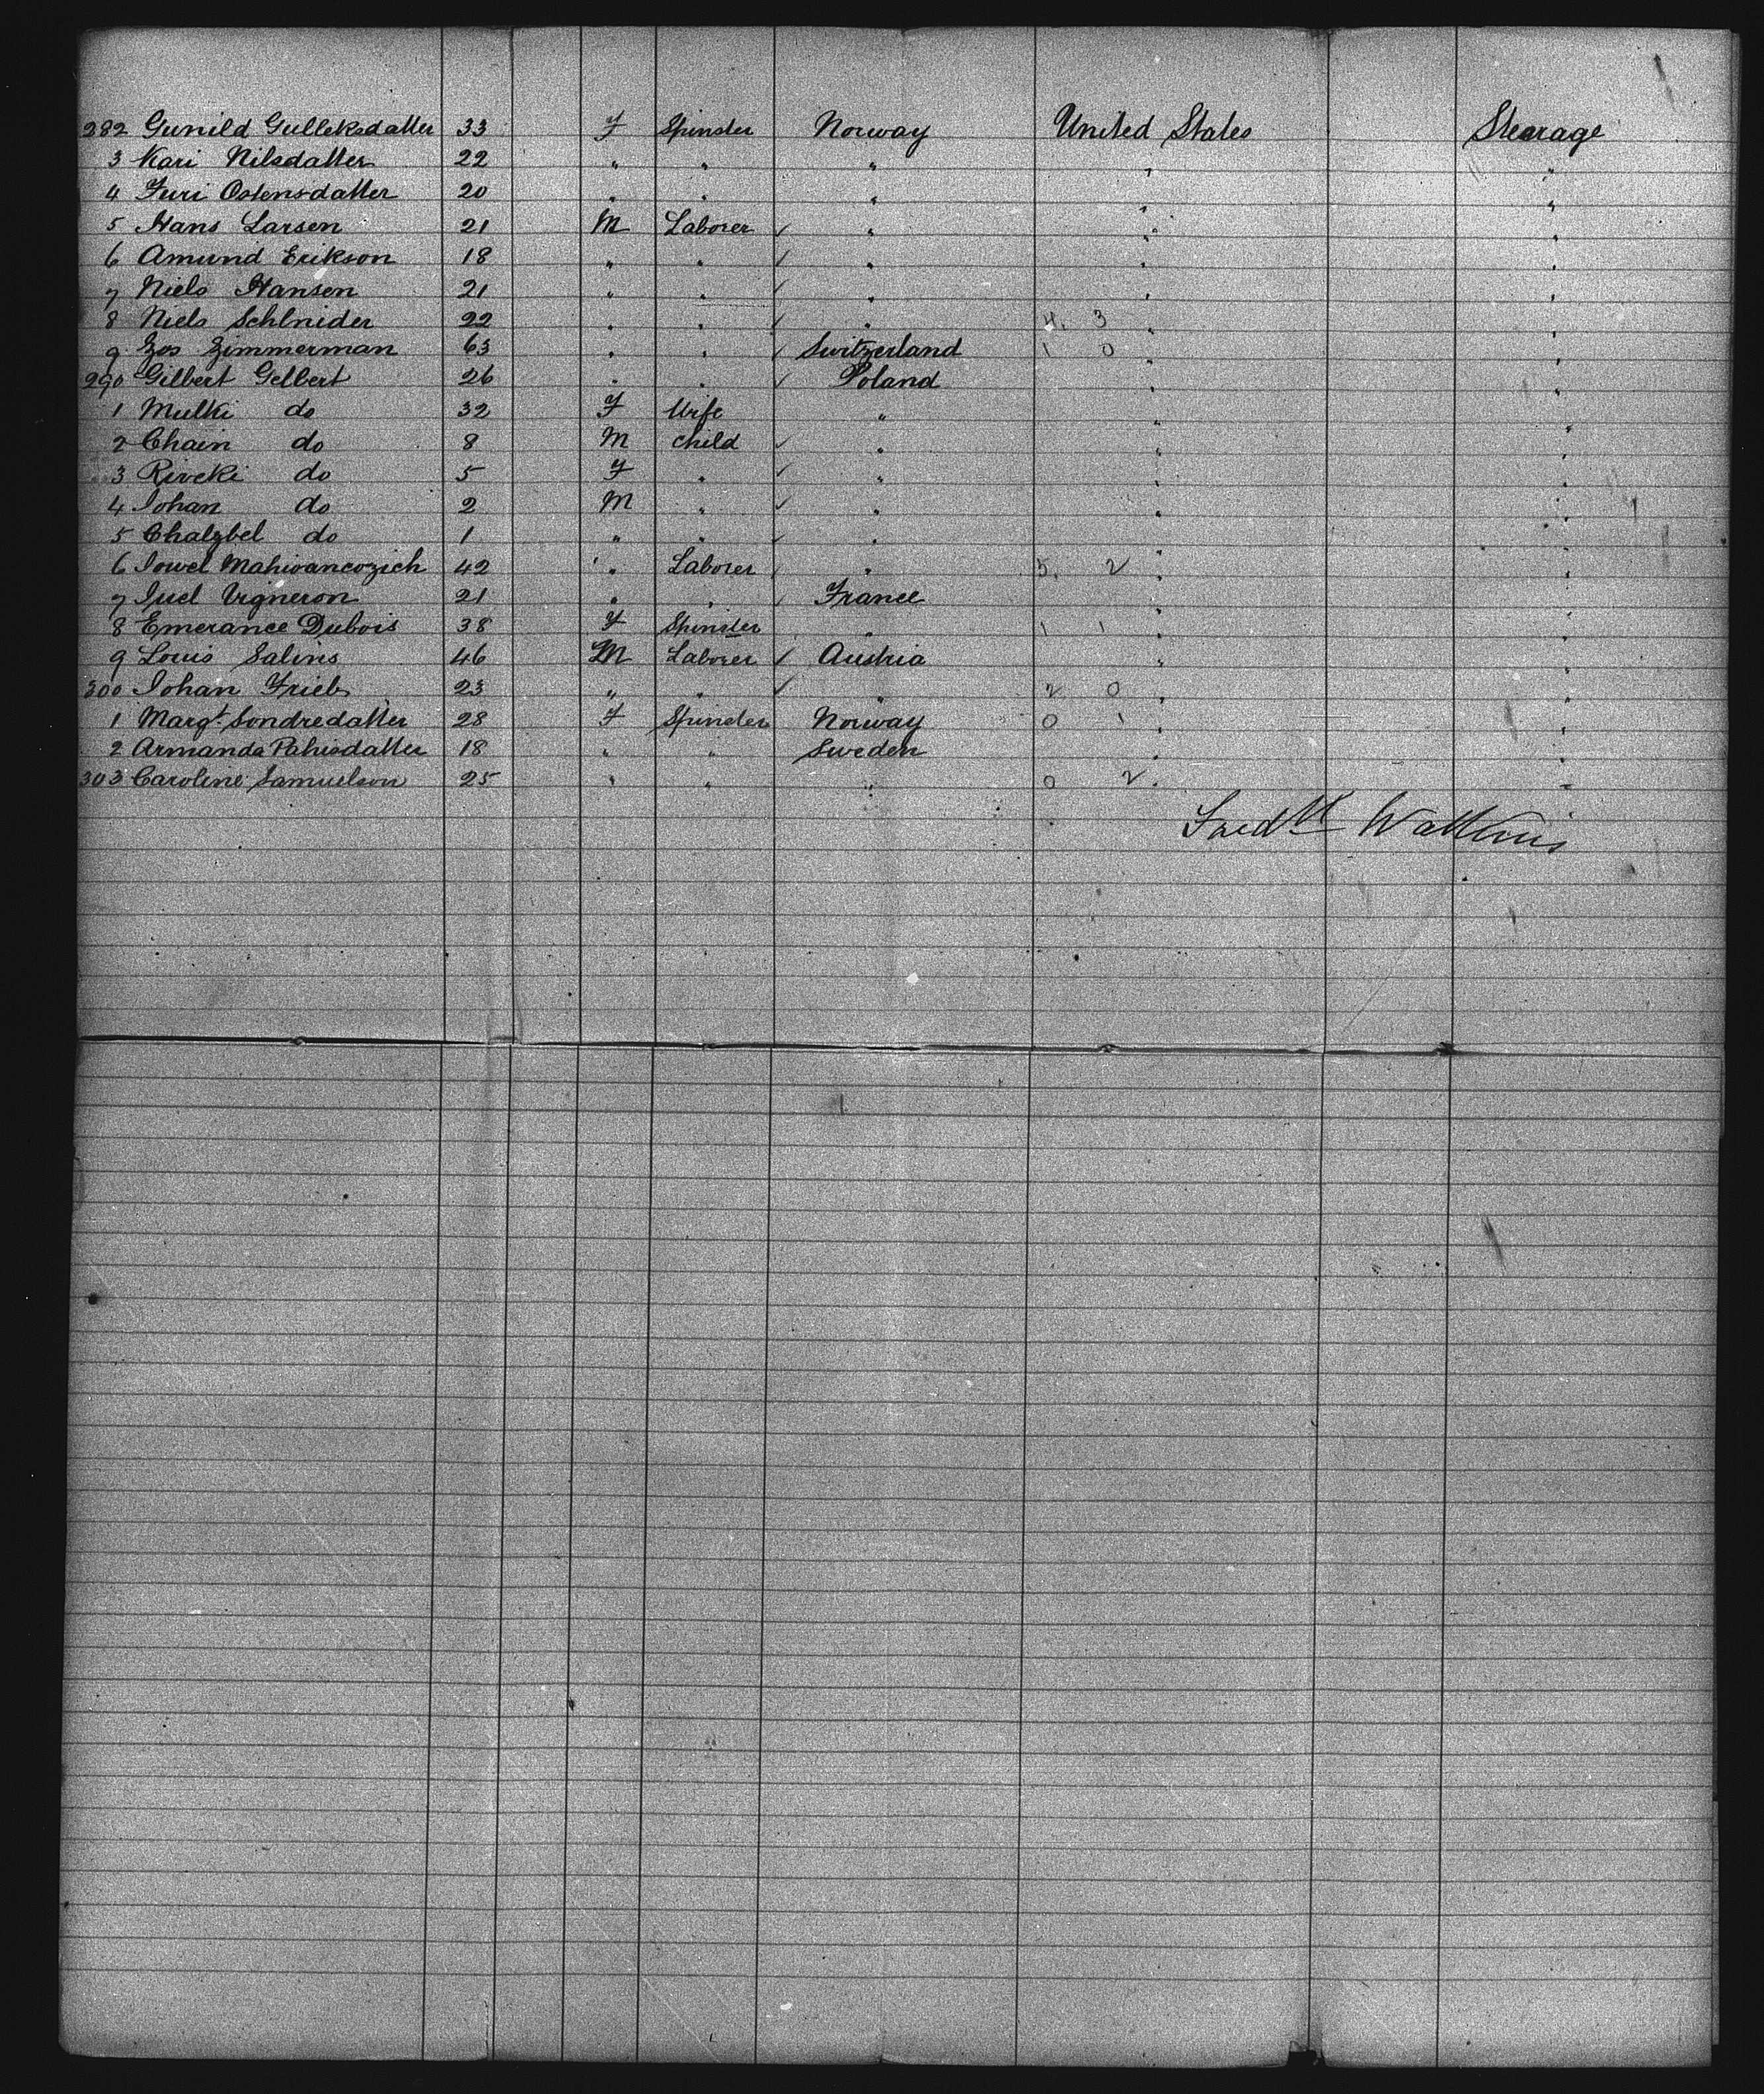 282 Gunild Gulleksdatter 33 F Spinster Norway United States Steerage
3 Kari Nilsdatter 22 " " " " "
4 Turi Ostensdatter 20 " " " " "
5 Hans Larsen 21 M Laborer ✓ " " "
6 Amund Erikson 18 " " ✓ " " "
7 Niels Hansen 21 " " ✓ " " "
8 Niels Schlnider 22 " " ✓ " 4. 3 " "
9 Jos Zimmerman 63 " " ✓ Switzerland 1 0 " "
290 Gilbert Gelbert 26 " " ✓ Poland " "
1 Mulki do 32 F Wife " " "
2 Chain do 8 M child ✓ " " "
3 Riveki do 5 F " ✓ " " "
4 Johan do 2 M " ✓ " " "
5 Chalzbel do 1 " " ✓ " " "
6 Jowel 42 " Laborer " 5. 2 " "
7 Juel Vigneron 21 " " ✓ France " "
8 Emerance Dubois 38 F Spinster " 1 1 " "
9 Louis Salins 46 M Laborer ✓ Austria " "
300 Johan Frieb 23 " " ✓ " 2 0 " "
1 Margt. Sondredatter 28 F Spinster Norway 0 1 " "
2 Armanda Pahisdatter 18 " " Sweden " "
303 Caroline Samuelson 25 " " " 0 2 " "
Fredk Watkins